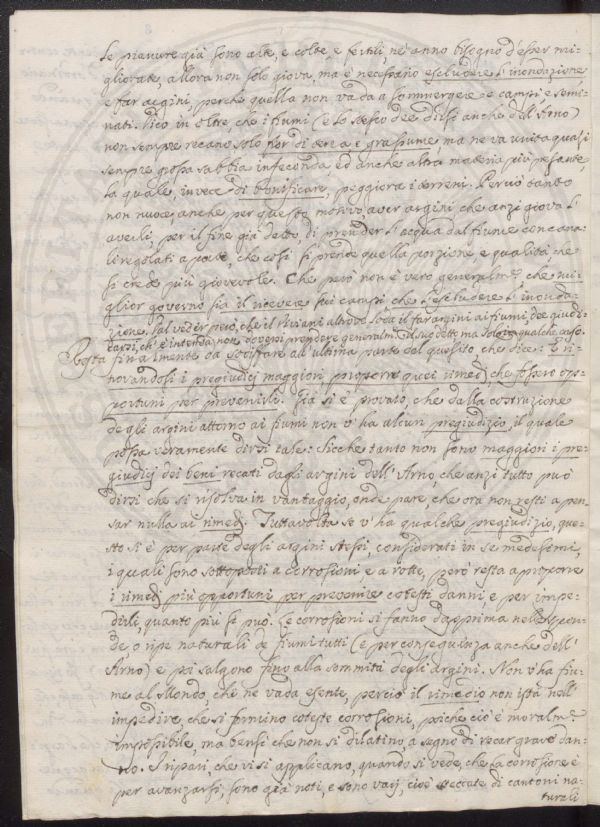 le pianure già sono alte, e colte, e fertili, ne anno bisogno d'esser mi=
gliorate, allora non solo giova, ma è necessario escludere l'inondazione
e far argini, perche quella non vada a sommergere e campi e semi=
nati. Dico in oltre, che i fiumi (e lo stesso dee dirsi anche dell'Arno)
non sempre recano solo fior di terra, e grassume ma ne va unita quasi
sempre grossa sabbia infeconda ed anche altra materia più pesante,
la quale, invece di bonificare, peggiora i terreni. Perciò tanto
non nuoce anche per questo motivo aver argini che anzi giova l'
averli, per il fine già detto di prender l'acqua dal fiume con cana=
li regolati a porte, che così si prende quella porzione, e qualità che
si crede più giovevole. Che però non è vero generalm.e che mi=
glior governo sia il ricevere sui campi che l'escludere l'inonda=
zione. Dal veder però, che il Viviani altrove loda il far argini ai fiumi, dee giudi=
carsi, ch'ei intenda non doversi prendere generalm. il suddetto ma solo in qualche caso.
Resta finalmente da sodisfare all'ultima parte del quesito che dice: E ri=
novandosi i pregiudizj maggiori proporre quei rimedj, che fossero op=
portuni per prevenirli. Già si è provato, che dalla costruzione
degli argini attorno ai fiumi non v'ha alcun pregiudizio, il quale
possa veramente dirsi tale: sicche tanto non sono maggiori i pre=
giudizj dei beni recati dagli argini dell'Arno, che anzi tutto può
dirsi che si risolva in vantaggio, onde pare, che ora non resti a pen=
sar nulla ai rimedj. Tuttavolta se v'ha qualche pregiudizio, que=
sto si è per parte degli argini stessi, considerati in se medesimi,
i quali sono sottoposti a corrosioni, e a rotte, però resta a proporre
i rimedj più opportuni per prevenire cotesti danni, e per impe=
dirli, quanto più si può. Le corrosioni si fanno da prima nelle spon=
de, o ripe naturali de fiumi tutti (e per conseguenza anche dell'
Arno) e poi salgono fino alla sommità degli argini. Non v'ha fiu=
me al Mondo, che ne vada esente, perciò il rimedio non istà nell'
impedire, che si formino coteste corrosioni, poiche ciò è moralm.e
impossibile, ma bensì che non si dilatino a segno di recar grave dan=
no. I ripari, che vi si applicano, quando si vede, che la corrosione è
per avanzarsi, sono già noti, e sono varj, cioè steccate di cantoni na=
turali